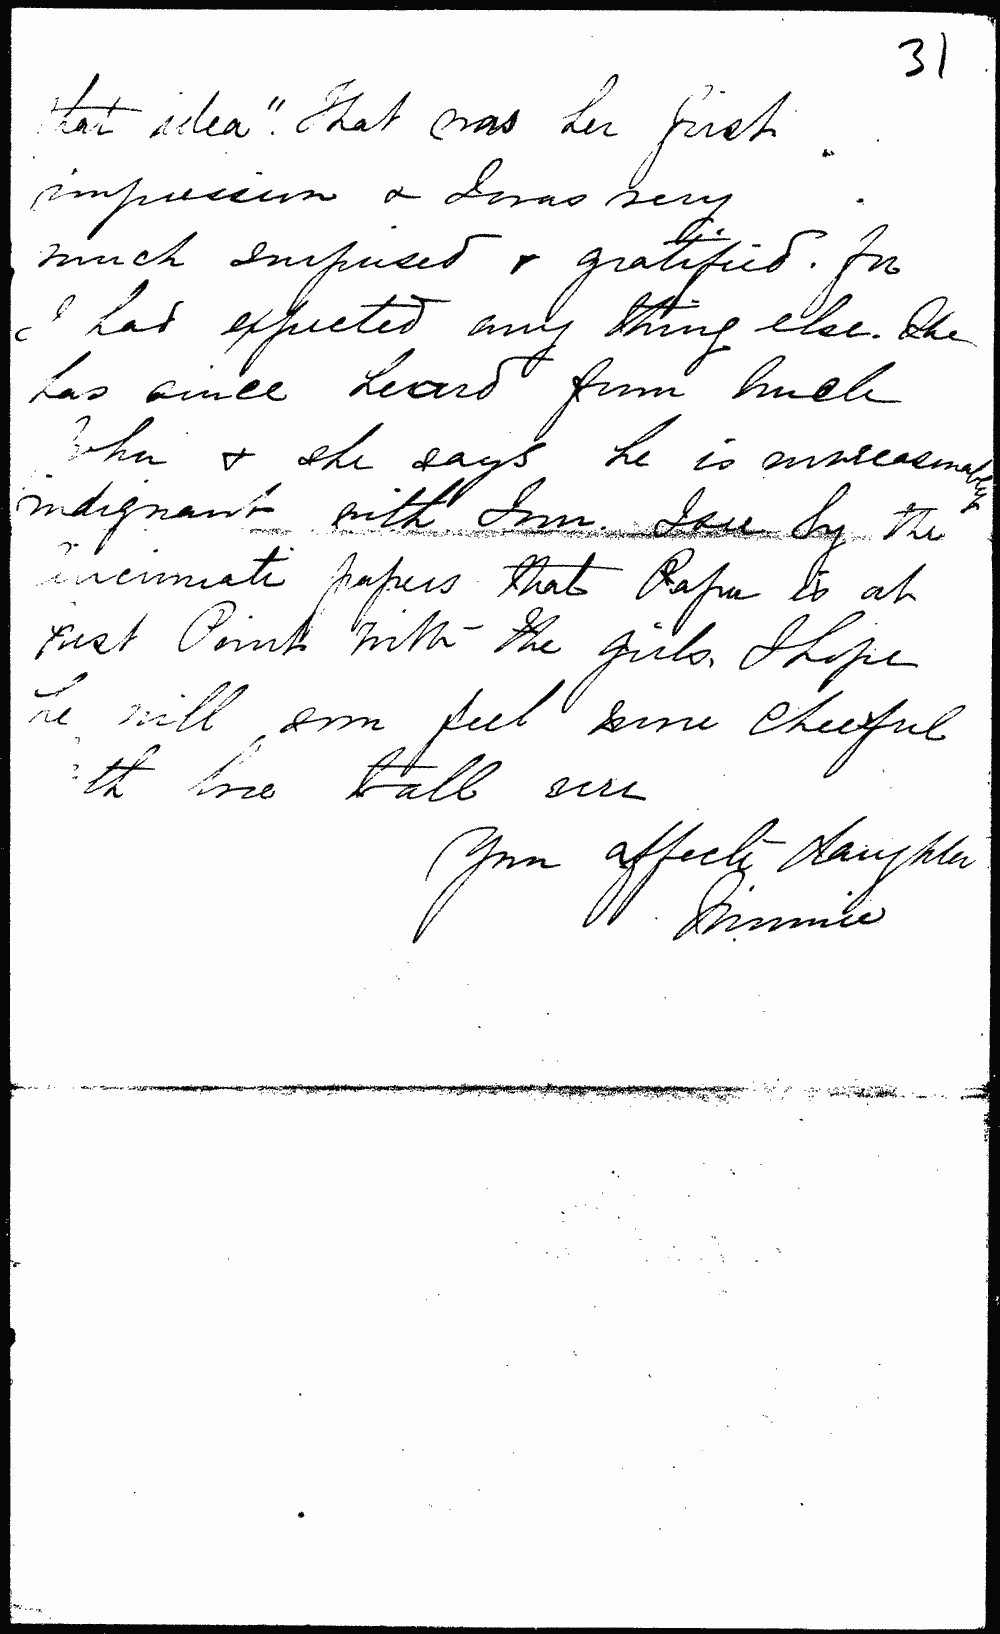 31
that idea". That was her first
impression & I was very
much surprised & gratified. for
I had expected any thing else. She
has since heard from Uncle
John & she says he is unreasonably
indignant with Tom. I see by the
Cincinnati papers that Papa is at
West Point with the girls. I hope
he will soon feel more cheerful
with love to all
Your affecte daughter
Minnie